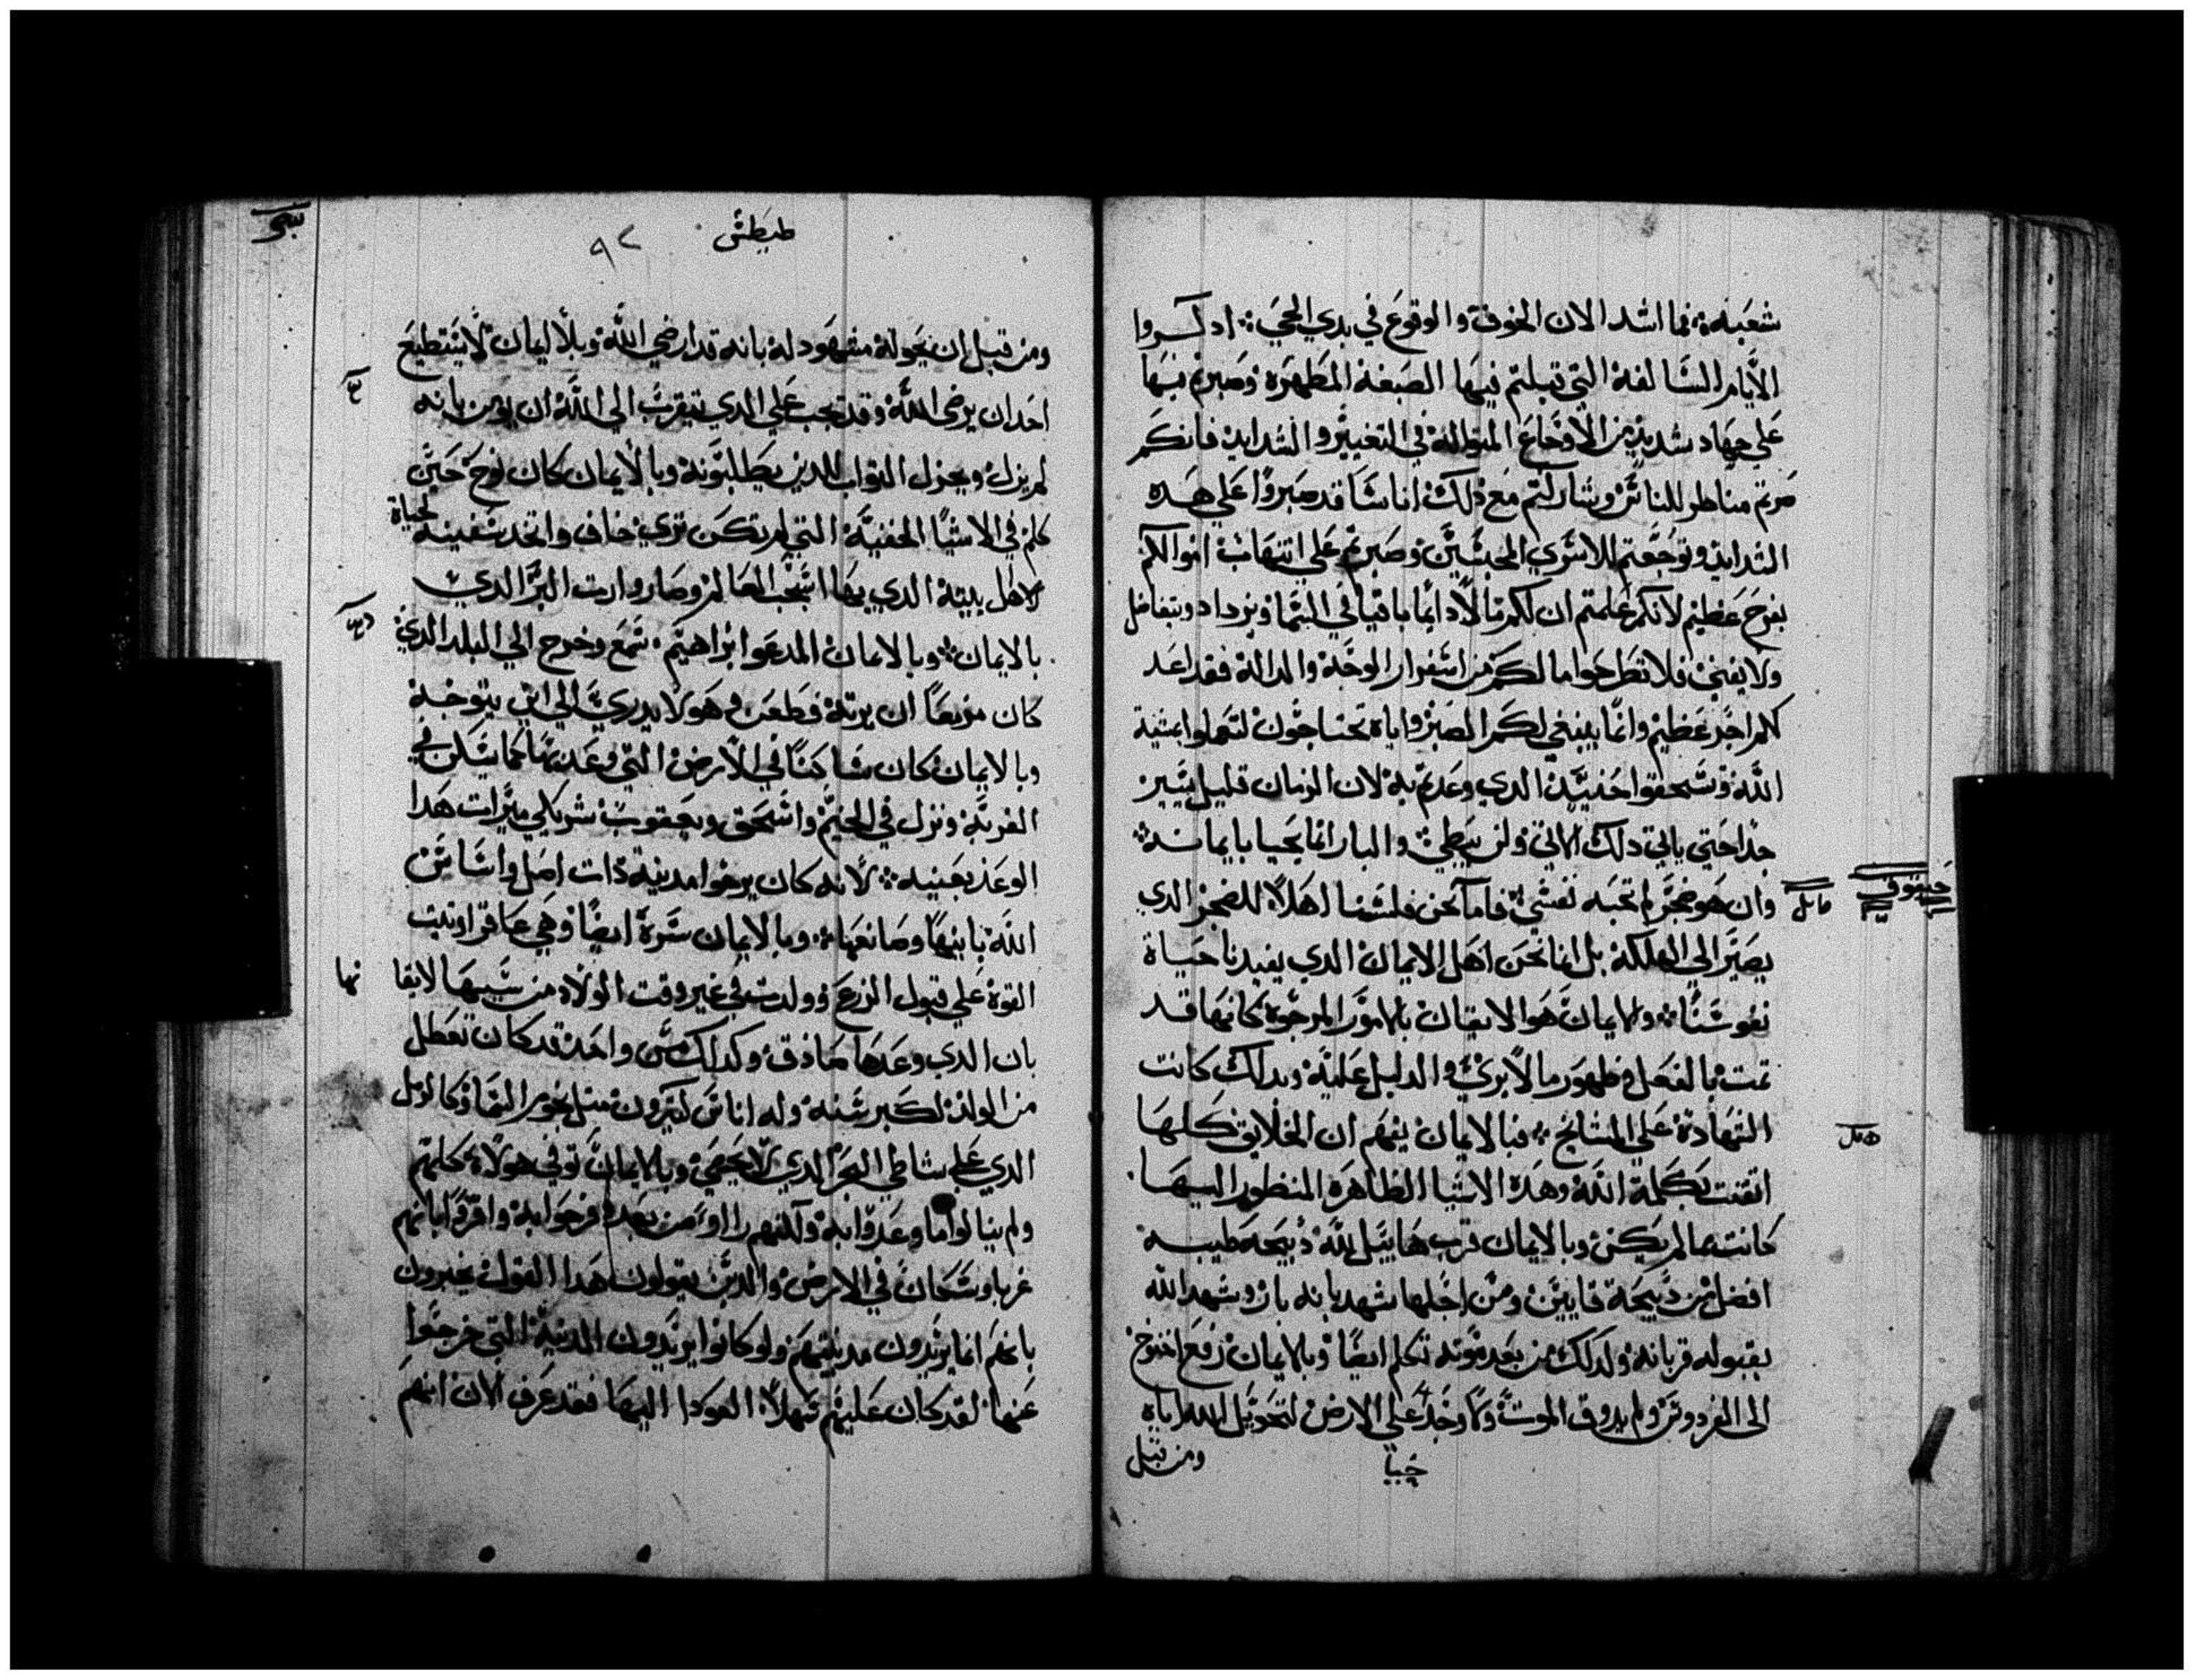 شعبه فما اشد الان الخوف والوقوع في يدي الحي اذكروا
الايام السالفة التي قبلتم فيها الصبغة المطهرة وصبرتم فيها
علي جهاد شديد من الاوجاع في التعيير والشدايد فانكم
صرتم مناظر للناس وشاركتم مع ذلك اناسا قد صبروا علي هده
الشدايد وتوجعتم للاسري المحبسين وصبرتم علي انتهاب اموالكم
بفرح عظيم لانكم علمتم ان لكم مالا دايما باقيا في السما ويزداد ويتفاضل
ولا يفني فلا تطرحوا ما لكم من اسفرار الوجه والدالة فقد اعد
لكم اجر عظيم وانما ينبغي لكم الصبر واياه تحتاجون لتعملوا بمشية
الله وتستحقوا حينيد الدي وعدتم به لان الزمان قليل يسير
جدا حتي ياتي دلك الاتي ولن يبطي والبار انما يحيا بايمانه
وان هو ضجر لم تحبه نفسي فاما نحن فلسنا اهلا للضجر الدي
يصير الي الهلكة بل انما نحن اهل الايمان الدي يفيدنا حياة
نفوسنا والايمان هو الايقان بالامور المرجوة كانها قد
تمت بالفعل وظهور مالا يري والدليل عليه وبدلك كانت
الشهادة علي المشايخ فبالايمان يفهم ان الخلايق كلها
اتقنت بكلمة الله وهده الاشيا الظاهرة المنظور اليها
كانت مما لم يكن وبالايمان قرب هابيل لله دبيحة طيبة
افضل من دبيحة قايين ومن اجلها شهد بانه بار وشهد الله
بقبوله قربانه ولدلك من بعد موته تكلم ايضا وبالايمان رفع اخنوخ
الي الفردوس ولم يدوق الموت وما وجد علي الارض لتحويل الله اياه
ومن قبل
حيا
حبقوق
هابيل
طيطس
٩٢
ومن قبل ان يحوله مشهود له بانه قد ارضي الله وبلا ايمان لا يستطيع
احد ان يرضي الله وقد يجب علي الدي يتقرب الي الله ان يومن بانه
لم يزل ويجزل الثواب للدين يطلبونه وبالايمان كان نوح حين
كلم في الاشيا الخفية التي لم تكن تري خاف واتخد سفينة لحياة
لاهل بيته الدي بها اشجب العالم وصار وارث البر الدي
بالايمان وبالايمان المدعوا ابراهيم سمع وخرج الي البلد الدي
كان مزمعا ان يرثه فظعن وهو لا يدري الي اين يتوجه
وبالايمان كان ساكنا في الارض التي وعد بها كما سكن في
الغربة ونزل في الخيم واسحق ويعقوب شريكي ميراث هدا
الوعد بعينه لانه كان يرجوا مدينة دات اصل واساس
الله بانيها وصانعها وبالايمان سرة ايضا وهي عاقر اوتيت
القوة علي قبول الزرع وولدت في غير وقت الولاد من سنها لايقانها
بان الدي وعدها صادق وكدلك من واحد قد كان تعطل
من الولد لكبر سنه وله اناس كثيرون مثل نجوم السما وكالرمل
الدي علي شاطي البحر الدي لا يحصي وبالايمان توفي هولاء كلهم
ولم ينالوا ما وعدوا به ولكنهم راوه من بعد وفرحوا به واقروا بانهم
غربا وسكان في الارض والدين يقولون هدا القول يخبرون
بانهم انما يريدون مدينتهم ولو كانوا يريدون المدينة التي خرجوا
عنها لقد كان عليهم سهلا العودا اليها فقد عرف الان انهم